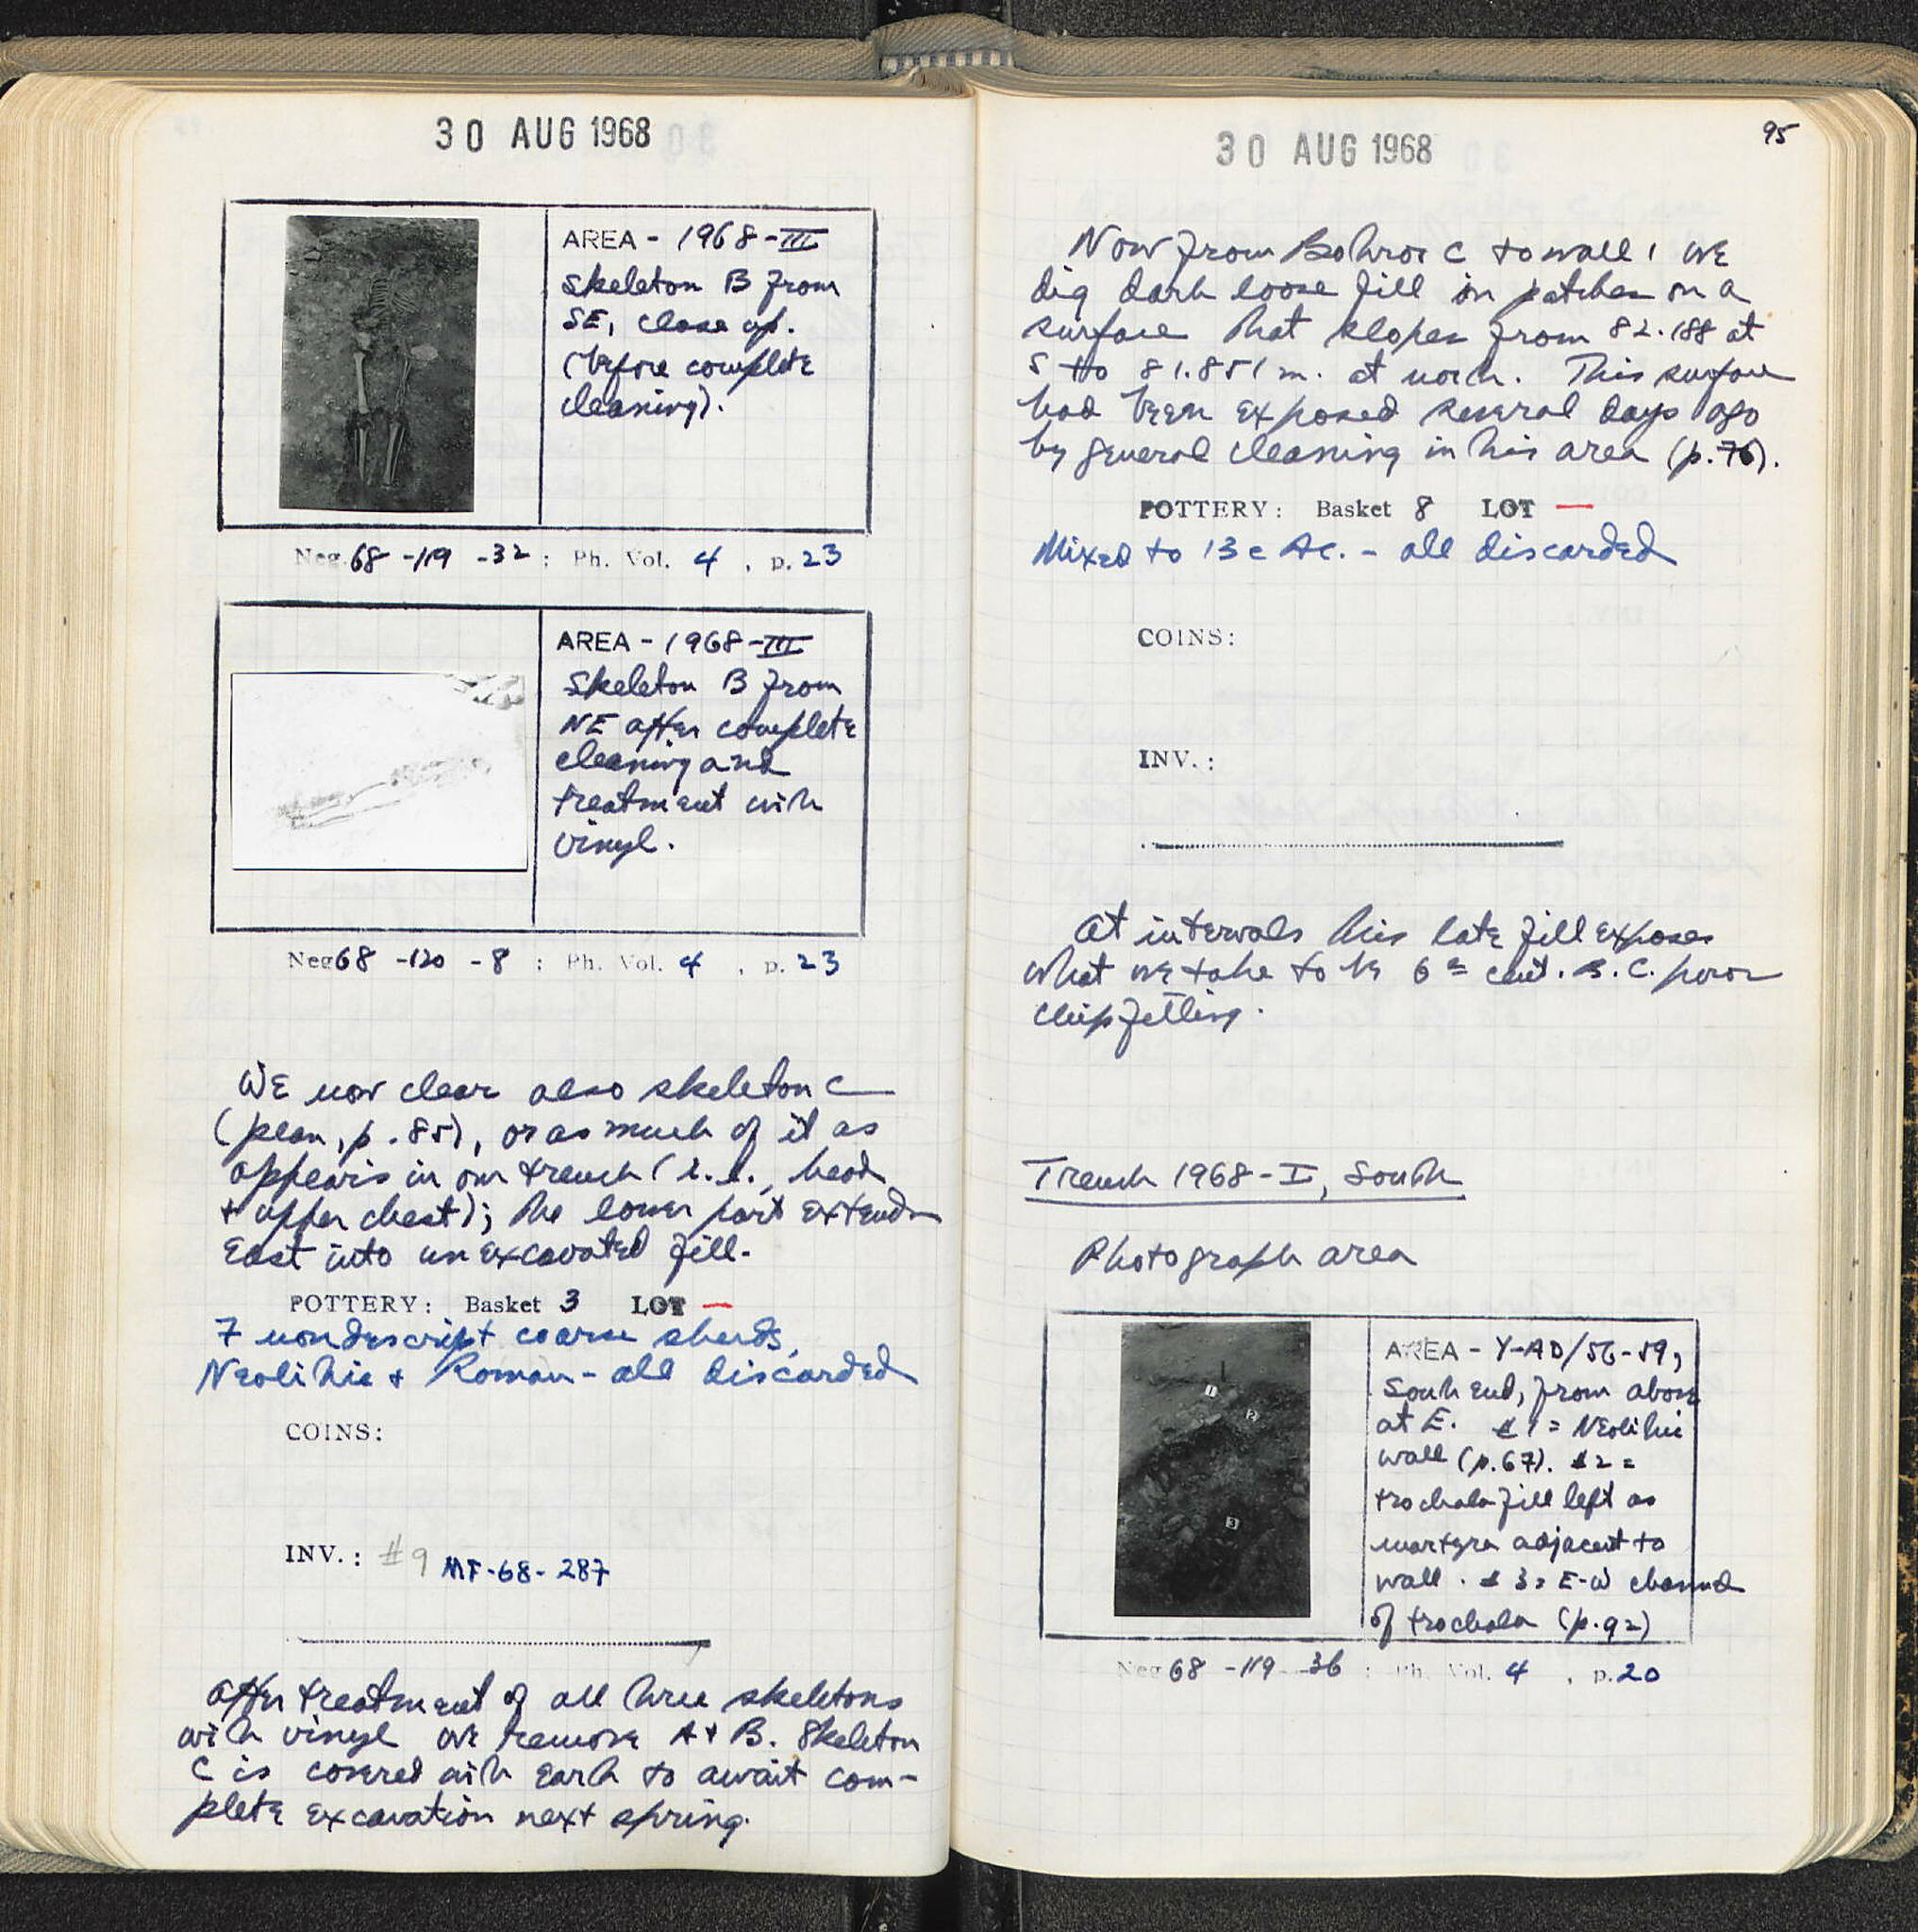 30 AUG 1968
AREA - 1968-III
Skeleton B from
SE, close up.
(before complete
cleaning).
Neg. 68 -119 -32 : Ph. Vol. 4 , p. 23
AREA - 1968-III
Skeleton B from
NE after complete
cleaning and
treatment with
vinyl.
Neg 68 -120 -8 : Ph. Vol. 4 , p. 23
We now clear also skeleton C
(plan, p. 85), or as much of it as
appears in our trench (i.e., head
+ upper chest); the lower part extends
East into unexcavated fill.
POTTERY: Basket 3 LOT —
7 nondescript coarse sherds,
Neolithic + Roman - all discarded
COINS:
INV.: #9 MF-68-287
After treatment of all three skeletons
with vinyl we remove A + B. Skeleton
C is covered with earth to await com-
plete excavation next spring.
95
30 AUG 1968
Now from Bothros C to wall 1 we
dig dark loose fill in patches on a
surface that slopes from 82.188 at
S to 81.851 m. at north. This surface
had been exposed several days ago
by general cleaning in this area (p. 76).
POTTERY: Basket 8 LOT —
Mixed to 13 c AC. - all discarded
COINS:
INV.:
At intervals this late fill exposes
what we take to be 6th cent. B.C. poros
chip filling.
Trench 1968-I, South
Photograph area
AREA - Y-AD/56-59,
South end, from above
at E. #1 = Neolithic
wall (p. 67). #2 =
trochala fill left as
martyra adjacent to
wall. #3 = E-W channel
of trochala (p. 92)
Neg 68 -119 -36 : Ph. Vol. 4 , p. 20
1
2
3